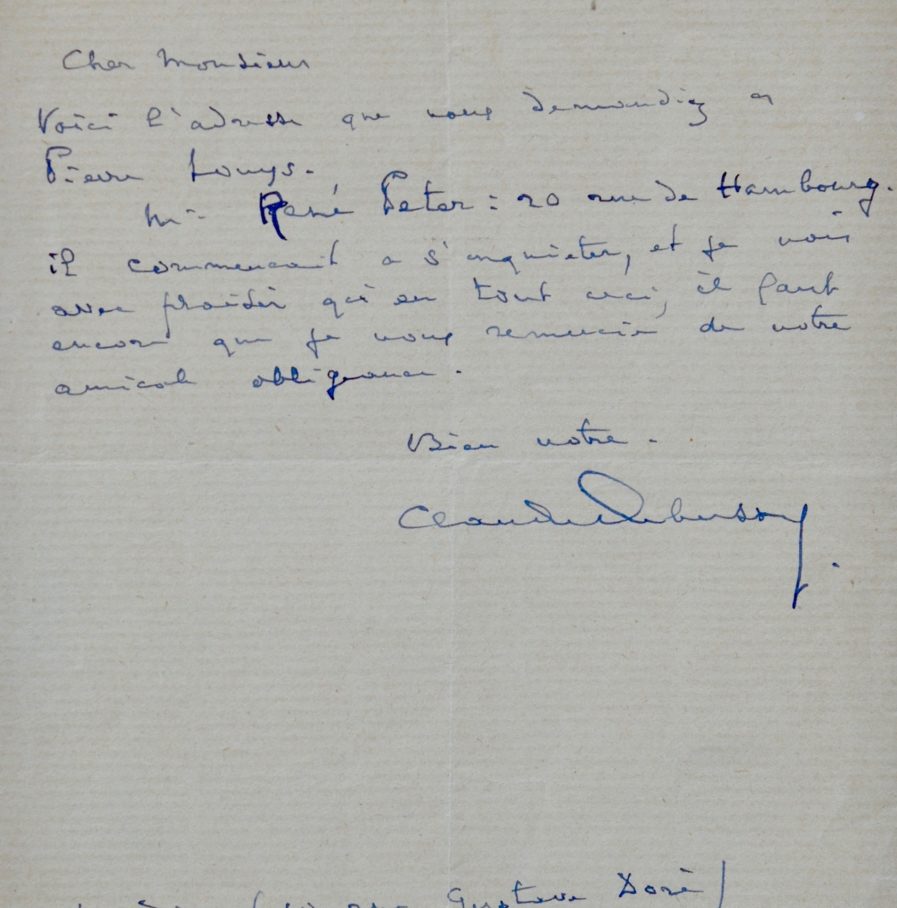 Cher Monsieur
Voici l'adresse que vous demandiez a
Pierre Louys.
Mr René Peter : 20 rue de Hambourg.
il commencait a s'inquieter, et je vois
avec plaisir qu'en tout ceci, il faut
encore que je vous remercie de votre
amicale obligeance.
Bien votre.
Claude Debussy.
rue Gustave Doré